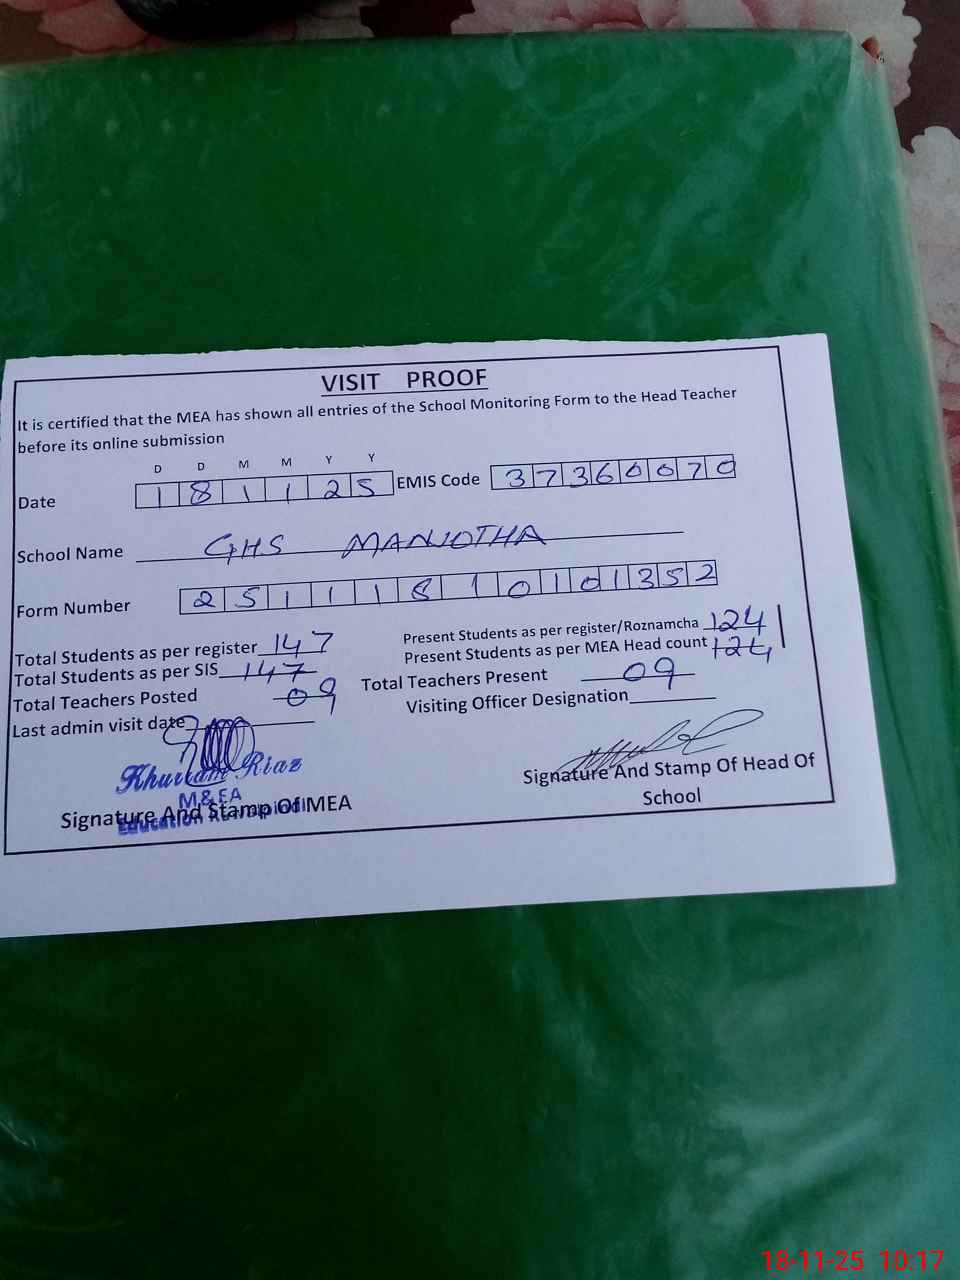 VISIT PROOF
It is certified that the MEA has shown all entries of the School Monitoring Form to the Head Teacher
before its online submission
D D M M Y Y
Date 1 8 1 1 2 5 EMIS Code 3 7 3 6 0 0 7 0
School Name GHS MANJOTHA
Form Number 2 5 1 1 1 8 1 0 1 0 1 3 5 2
Total Students as per register 147 Present Students as per register/Roznamcha 124
Total Students as per SIS 147 Present Students as per MEA Head count 124
Total Teachers Posted 09 Total Teachers Present 09
Last admin visit date Visiting Officer Designation
Khurram Riaz
M&EA
Education Rawalpindi
Signature And Stamp Of MEA
Signature And Stamp Of Head Of
School
18-11-25 10:17